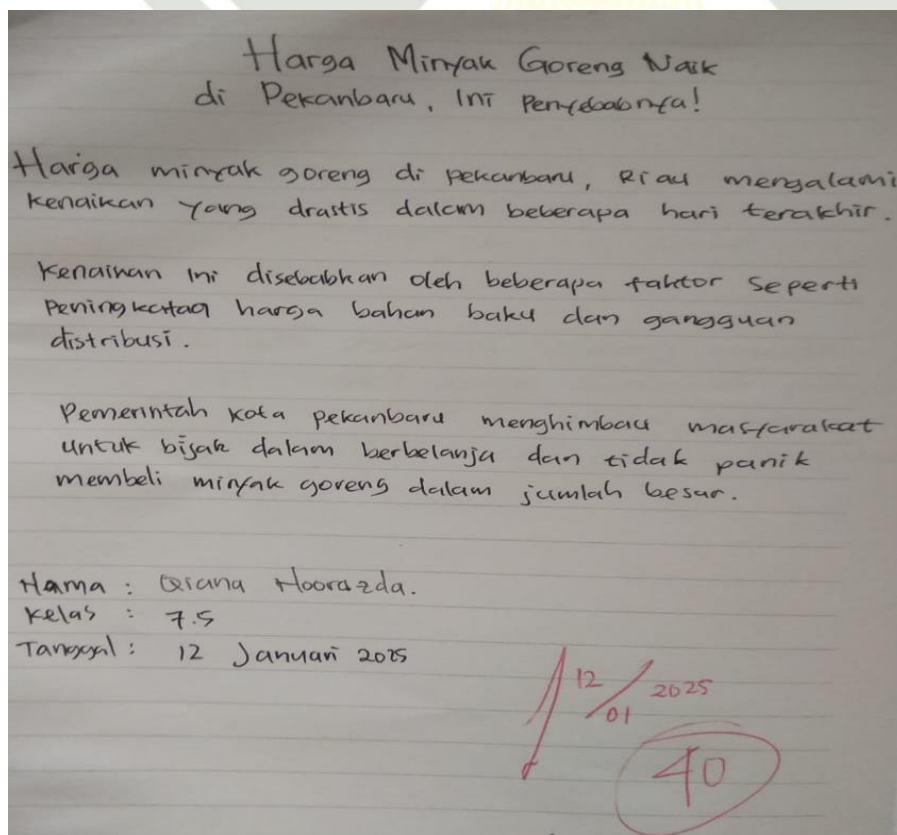 Harga Minyak Goreng Naik
di Pekanbaru, Ini Penyebabnya!
Harga minyak goreng di pekanbaru, Riau mengalami
kenaikan yang drastis dalam beberapa hari terakhir.
Kenaikan ini disebabkan oleh beberapa faktor seperti
Peningkatan harga bahan baku dan gangguan
distribusi.
Pemerintah kota pekanbaru menghimbau masyarakat
untuk bijak dalam berbelanja dan tidak panik
membeli minyak goreng dalam jumlah besar.
Nama : Qiana
Kelas : 7.5
Tanggal : 12 Januari 2025
12/01 2025
40